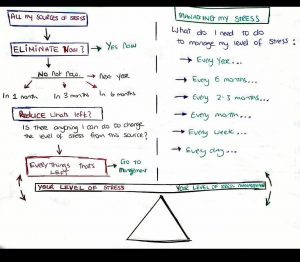 ALL MY SOURCES OF STRESS
ELIMINATE NOW?
Yes Now
No not Now..
In 1 month
In 3 months
In 6 months
Reduce What's left?
Is there anything I can do to change
the level of stress from this source?
Everything that's
LEFT
Go to
Management
MANAGING MY STRESS
What do I need to do
to manage my level of stress:
Every Year...
Every 6 months...
Every 2-3 months...
Every month...
Every week...
Every day...
YOUR LEVEL OF STRESS
YOUR LEVEL OF STRESS MANAGEMENT